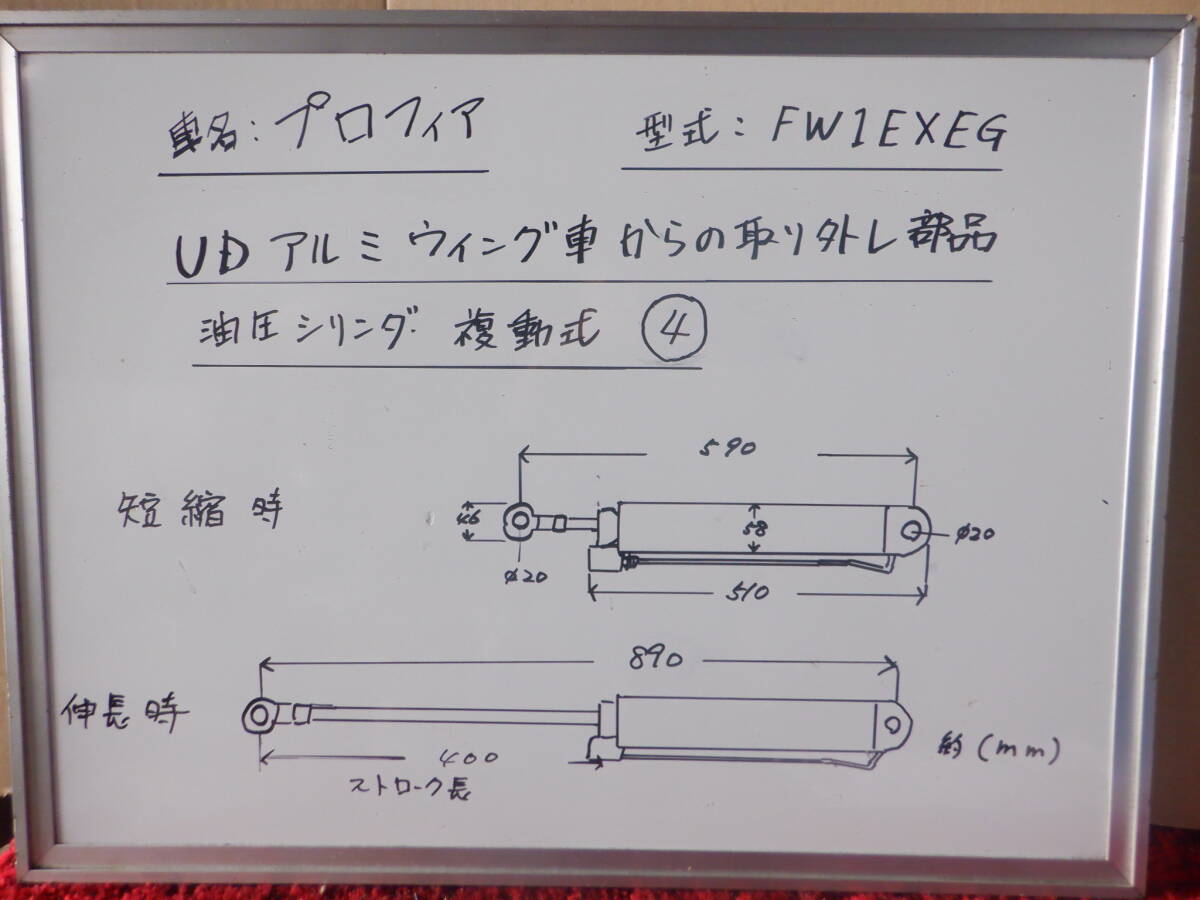 車名：プロフィア　型式：FW1EXEG
UDアルミウィング車からの取り外し部品
油圧シリンダ 複動式 ④
590
短縮時
46
58
φ20
φ20
510
890
伸長時
約(mm)
400
ストローク長